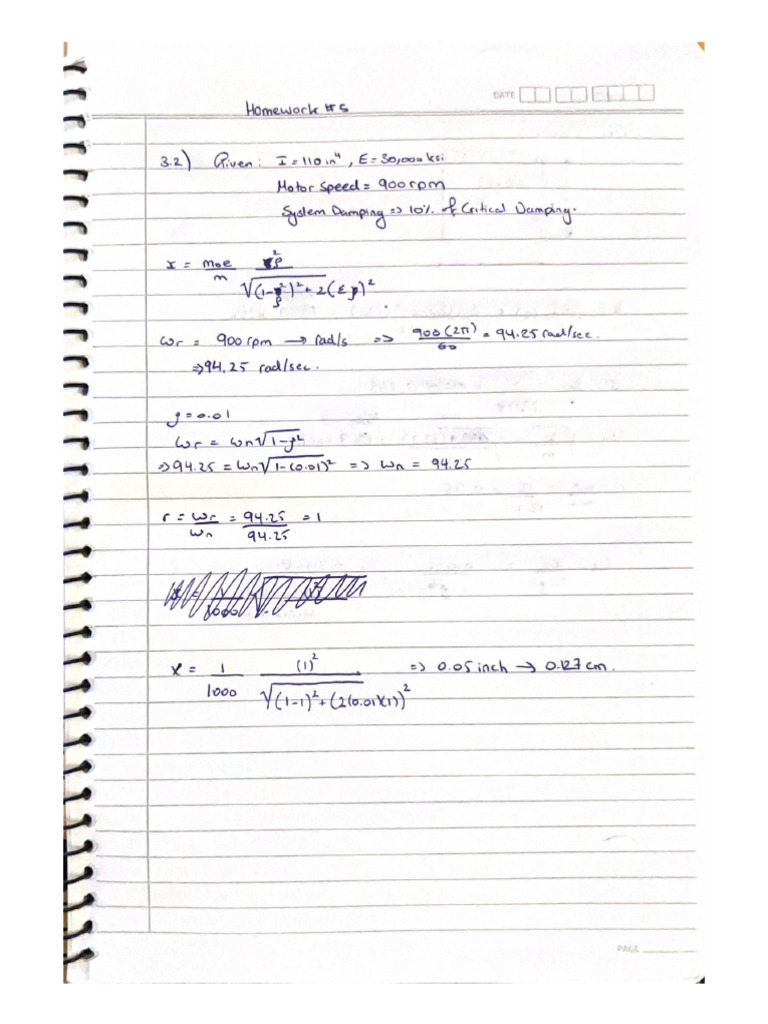 DATE
Homework #5
3.2) Given: I = 110 in⁴, E = 30,000 ksi
Motor Speed = 900 rpm
System Damping => 10% of Critical Damping.
x = m₀e/m ρ²/√(1-ρ²)² + 2(ξρ)²
ωr = 900 rpm → rad/s => 900(2π)/60 = 94.25 rad/sec.
=> 94.25 rad/sec.
ρ = 0.01
ωr = ωn√1-ρ²
=> 94.25 = ωn√1-(0.01)² => ωn = 94.25
r = ωr/ωn = 94.25/94.25 = 1
x = 1/1000 (1)²/√(1-1)² + (2(0.01)(1))² => 0.05 inch → 0.127 cm.
PAGE